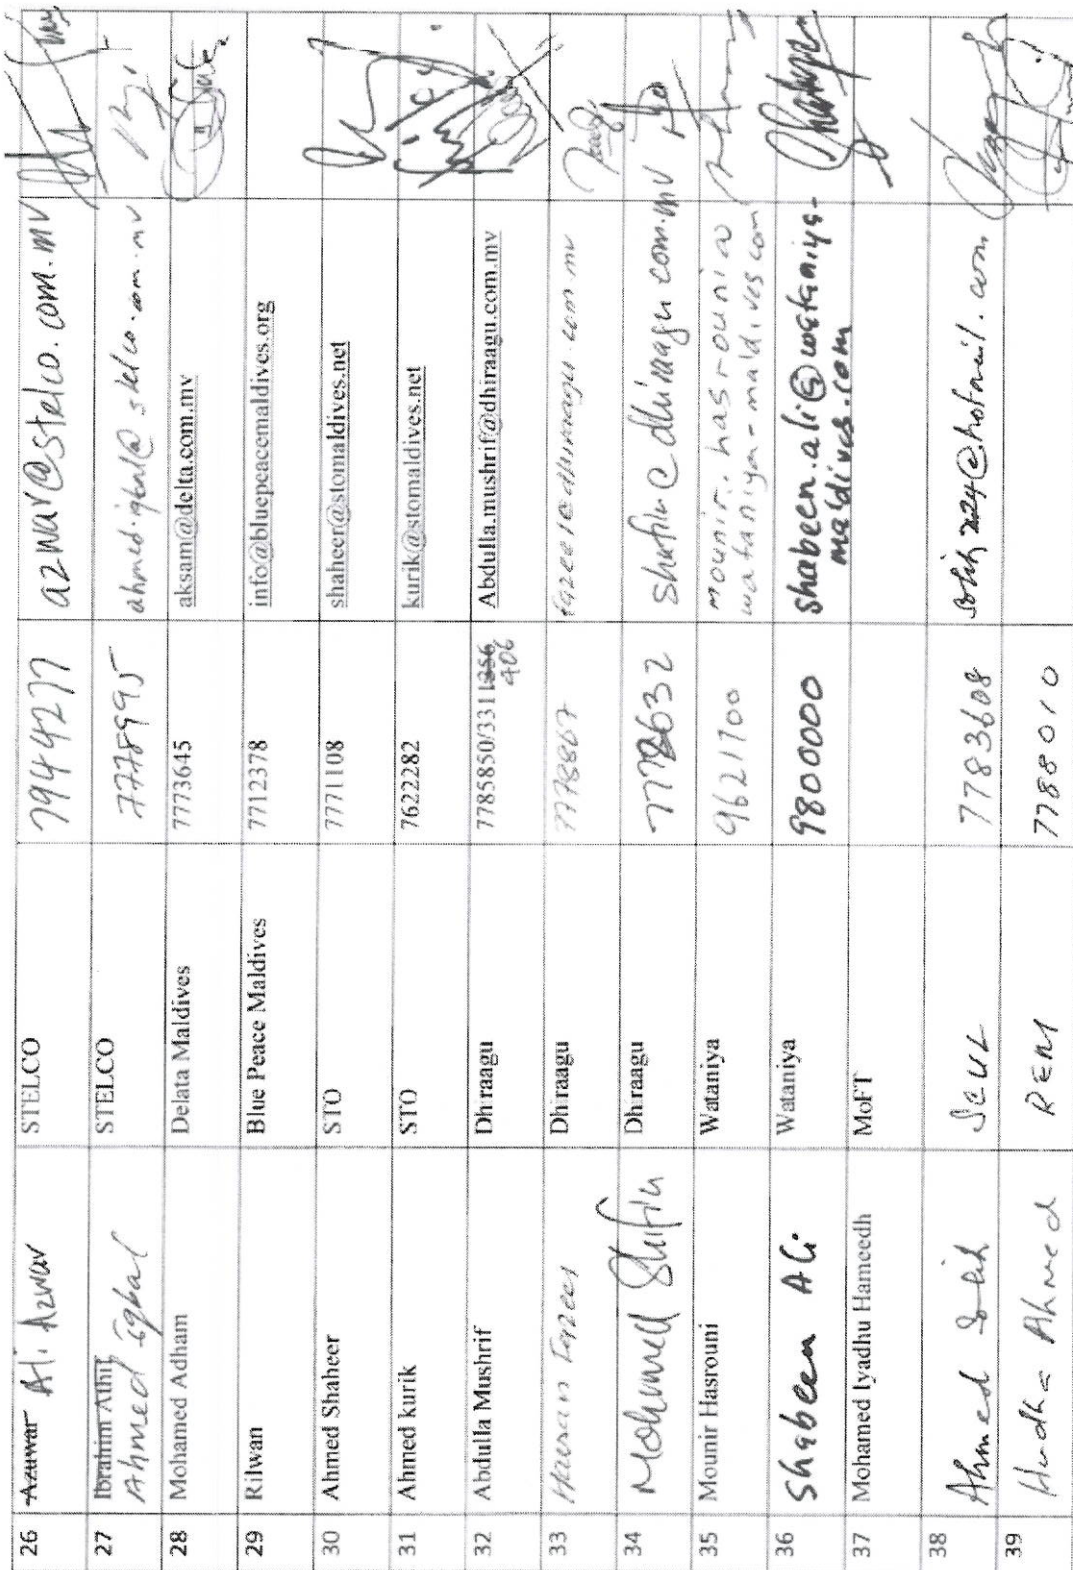 26 Azuwar Ali Azwar STELCO 7944277 azwar@stelco.com.mv
27 Ibrahim Athif STELCO 7778995 ahmed.iqbal@stelco.com.mv
Ahmed iqbal
28 Mohamed Adham Delata Maldives 7773645 aksam@delta.com.mv
29 Rilwan Blue Peace Maldives 7712378 info@bluepeacemaldives.org
30 Ahmed Shaheer STO 7771108 shaheer@stomaldives.net
31 Ahmed kurik STO 7622282 kurik@stomaldives.net
32 Abdulla Mushrif Dhiraagu 7785850/3311356 Abdulla.mushrif@dhiraagu.com.mv
406
33 Dhiraagu 7778867
34 Mohamed Shifin Dhiraagu 7778632
35 Mounir Hasrouni Wataniya 9621700 mounir.hasrouni@
wataniya-maldives.com
36 Shabeen Ali Wataniya 9800000 shabeen.ali@wataniya-
maldives.com
37 Mohamed Iyadhu Hameedh MoFT
38 Ahmed 7783608
39 Hudha Ahmed 7788010